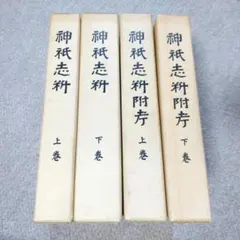 神祇志料 上巻
神祇志料 下巻
神祇志料附考 上巻
神祇志料附考 下巻